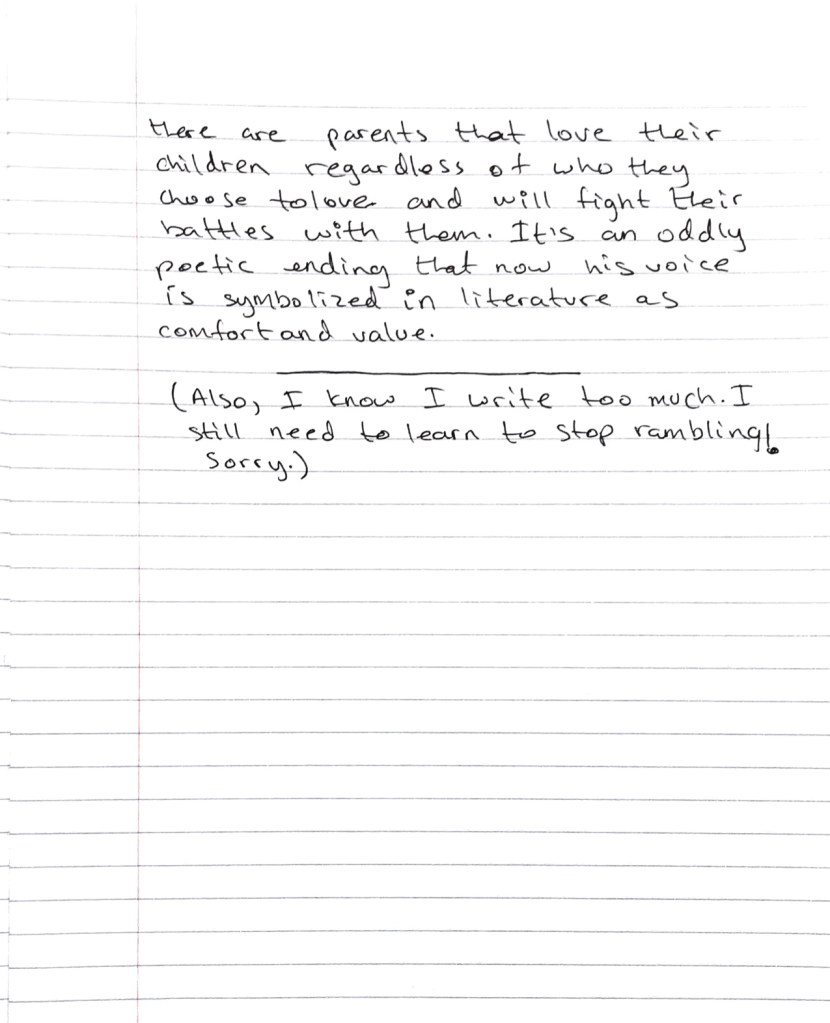 there are parents that love their
children regardless of who they
choose to love and will fight their
battles with them. It's an oddly
poetic ending that now his voice
is symbolized in literature as
comfort and value.
(Also, I know I write too much. I
still need to learn to stop rambling!
Sorry.)